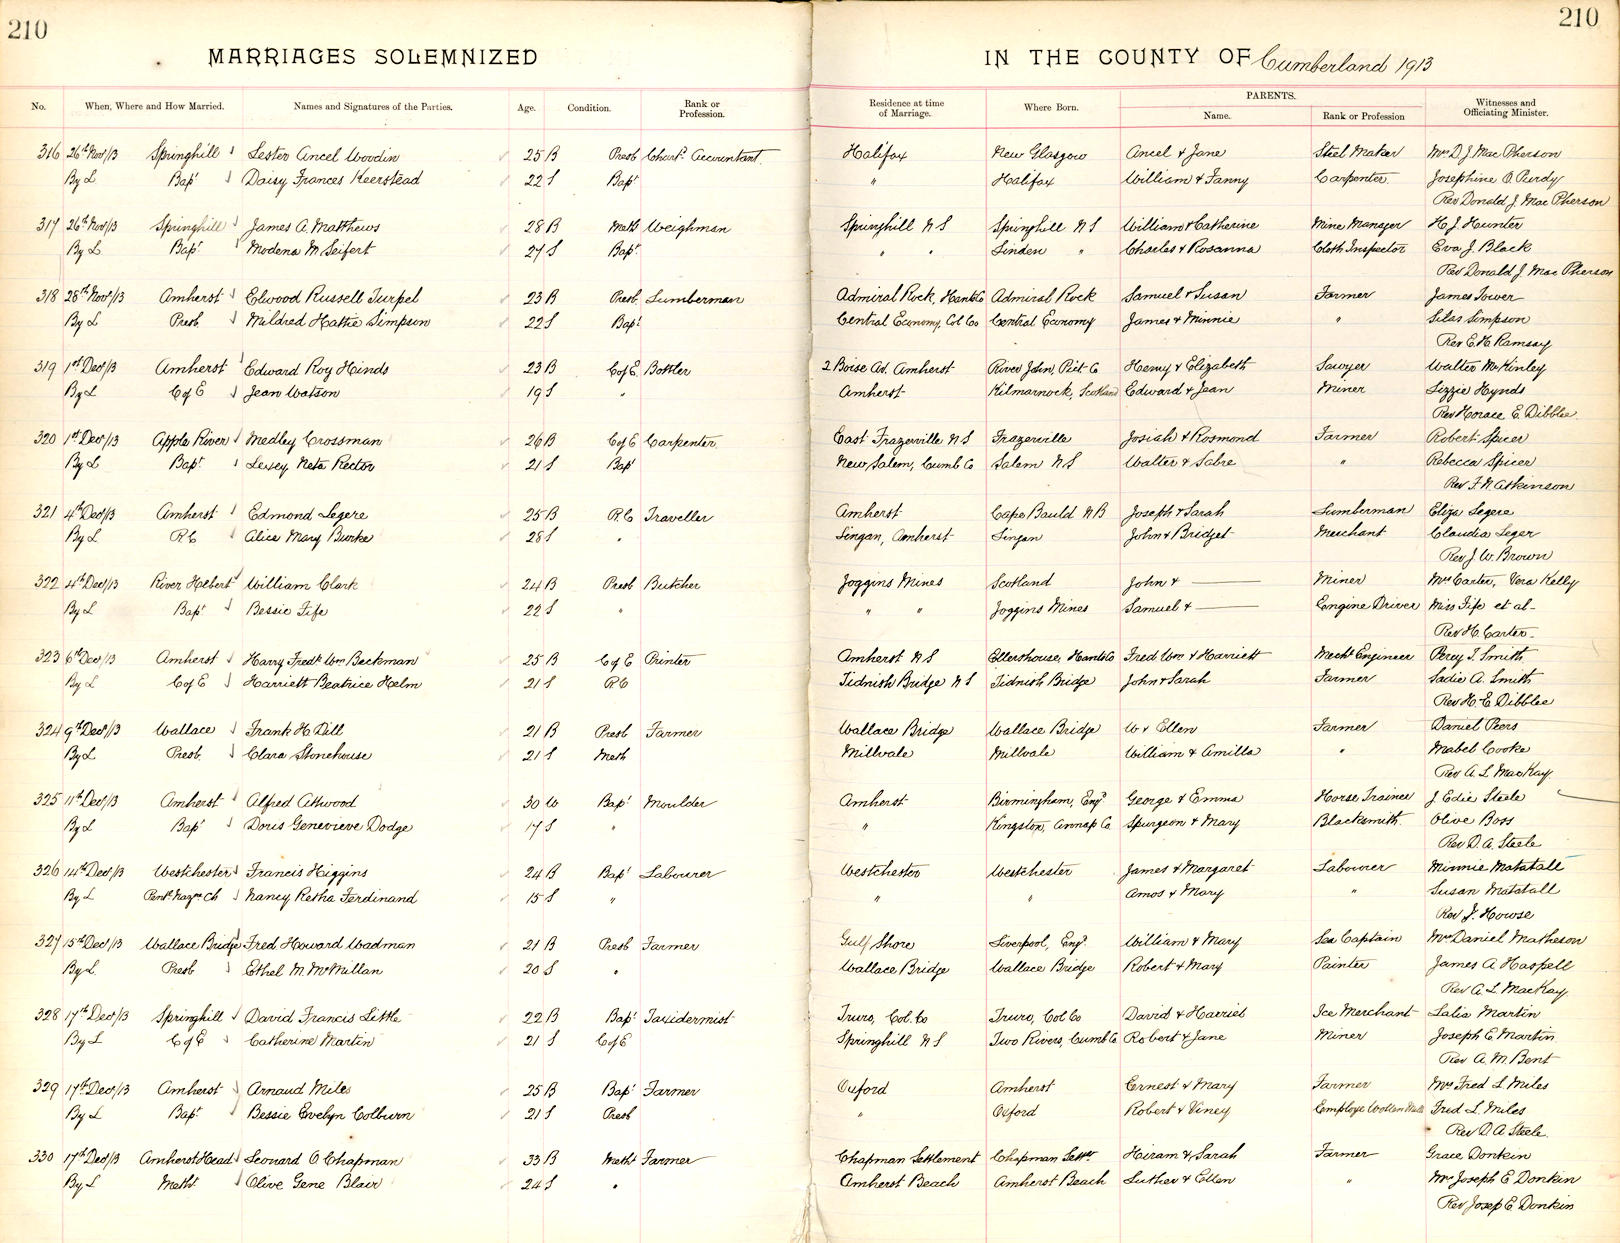 210 210
MARRIAGES SOLEMNIZED IN THE COUNTY OF Cumberland 1913
No. When, Where and How Married. Names and Signatures of the Parties. Age. Condition. Rank or Profession. Residence at time of Marriage. Where Born. PARENTS. Name. Rank or Profession Witnesses and Officiating Minister.
316 26th Nov/13 Springhill Lester Ancel Woodin 25 B Presb Chart. Accountant. Halifax New Glasgow Ancel & Jane Steel Maker Mrs D J MacPherson
By L Bapt Daisy Frances Keerstead 22 S Bapt " Halifax William & Fanny Carpenter Josephine O. Purdy
Rev Donald J. MacPherson
317 26th Nov/13 Springhill James A. Matthews 28 B Meth Weighman Springhill N S Springhill N S William & Catherine Mine Manager H. J. Hunter
By L Bapt Modena M Seifert 27 S Bapt " " Linden " Charles & Rosanna Cloth Inspector Eva J. Black
Rev Donald J. MacPherson
318 28th Nov/13 Amherst Elwood Russell Turpel 23 B Presb. Lumberman Admiral Rock, Hants Co Admiral Rock Samuel & Susan Farmer James Tower
By L Presb Mildred Hattie Simpson 22 S Bapt Central Economy, Col Co Central Economy James & Minnie " Silas Simpson
Rev E. H. Ramsay
319 1st Dec/13 Amherst Edward Roy Hinds 23 B C of E. Bottler 2 Boise Av. Amherst River John, Pict Co Henry & Elizabeth Sawyer Walter McKinley
By L C of E Jean Watson 19 S " Amherst Kilmarnock, Scotland Edward & Jean Miner Lizzie Hynds
Rev Horace E. Dibblee
320 1st Dec/13 Apple River Medley Crossman 26 B C of E Carpenter East Frazerville N S Frazerville Josiah & Rosmond Farmer Robert Spicer
By L Bapt Lexey Neta Rector 21 S Bapt New Salem, Cumb Co Salem N S Walter & Sabre " Rebecca Spicer
Rev F. N. Atkinson
321 4th Dec/13 Amherst Edmond Legere 25 B R.C Traveller Amherst Cape Bauld N B Joseph & Sarah Lumberman Eliza Legere
By L R C Alice Mary Burke 28 S " Lingan, Amherst Lingan John & Bridget Merchant Claudia Leger
Rev J. W. Brown
322 4th Dec/13 River Hebert William Clark 24 B Presb Butcher Joggins Mines Scotland John & — Miner Mrs Carter, Vera Kelly
By L Bapt Bessie Fife 22 S " " " Joggins Mines Samuel & — Engine Driver Miss Fife et al-
Rev H. Carter
323 6th Dec/13 Amherst Harry Fredk Wm Beckman 25 B C of E Printer Amherst N S Ellershouse, Hants Co Fred Wm & Harriett Mechl Engineer Percy T. Smith
By L C of E Harriett Beatrice Helm 21 S R C Tidnish Bridge N S Tidnish Bridge John & Sarah Farmer Sadie A. Smith
Rev H E Dibblee
324 9th Dec/13 Wallace Frank H Dill 21 B Presb Farmer Wallace Bridge Wallace Bridge W & Ellen Farmer Daniel Peers
By L Presb. Clara Stonehouse 21 S Meth Millvale Millvale William & Amilla " Mabel Cooke
Rev A. L. MacKay
325 11th Dec/13 Amherst Alfred Atwood 30 W Bapt Moulder Amherst Birmingham, Eng. George & Emma Horse Trainer J Edie Steele
By L Bapt Doris Genevieve Dodge 17 S " " Kingston, Annap Co Spurgeon & Mary Blacksmith Olive Boss
Rev D. A. Steele
326 14th Dec/13 Westchester Francis Higgins 24 B Bapt Labourer Westchester Westchester James & Margaret Labourer Minnie Matatall
By L Pent. Naz. Ch Nancy Retha Ferdinand 15 S " " " Amos & Mary " Susan Matatall
Rev J. Howse
327 15th Dec/13 Wallace Bridge Fred Howard Wadman 21 B Presb Farmer Gulf Shore Liverpool, Eng. William & Mary Sea Captain Mrs Daniel Matheson
By L Presb Ethel M McMillan 20 S " Wallace Bridge Wallace Bridge Robert & Mary Painter James A Haspell
Rev A. L. MacKay
328 17th Dec/13 Springhill David Francis Little 22 B Bapt Taxidermist Truro, Col. Co Truro, Col Co David & Harriet Ice Merchant Lalia Martin
By L C of E Catherine Martin 21 S C of E Springhill N S Two Rivers, Cumb Co Robert & Jane Miner Joseph E. Martin
Rev A. M. Bent
329 17th Dec/13 Amherst Arnaud Miles 25 B Bapt Farmer Oxford Amherst Ernest & Mary Farmer Mrs Fred L Miles
By L Bapt. Bessie Evelyn Colburn 21 S Presb " Oxford Robert & Viney Employe Woollen Mills Fred L. Miles
Rev D. A Steele.
330 17th Dec/13 Amherst Head Leonard O Chapman 33 B Meth Farmer Chapman Settlement Chapman Settlt Hiram & Sarah Farmer Grace Donkin
By L Meth. Olive Gene Blair 24 S " Amherst Beach Amherst Beach Luther & Ellen " Mrs Joseph E Donkin
Rev Josep E Donkin